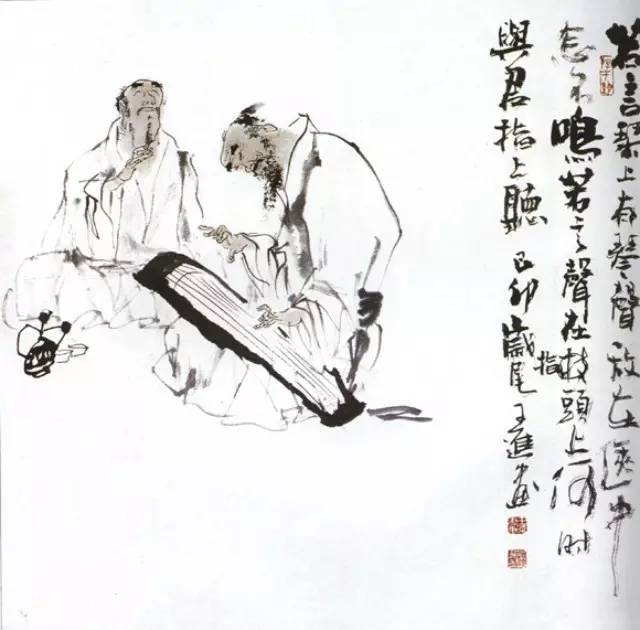 若言琴上有琴聲放在匣中
怎不鳴若言聲在枝頭上何时
指
與君指上聽 己卯歲尾王進画